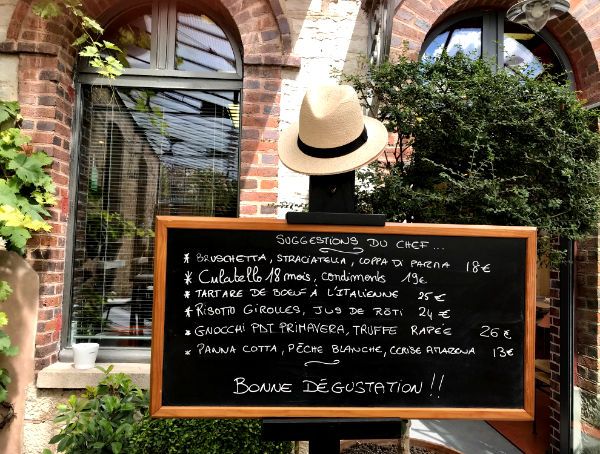 SUGGESTIONS DU CHEF...
* BRUSCHETTA, STRACIATELLA, COPPA DI PARMA 18€
* Culatello 18 mois, condiments 19€
* TARTARE DE BOEUF À L'ITALIENNE 25€
* RISOTTO GIROLLES, JUS DE RÔTI 24€
* GNOCCHI PDT PRIMAVERA, TRUFFE RAPÉE 26€
* PANNA COTTA, PÊCHE BLANCHE, CERISE AMARENA 13€
BONNE DÉGUSTATION !!